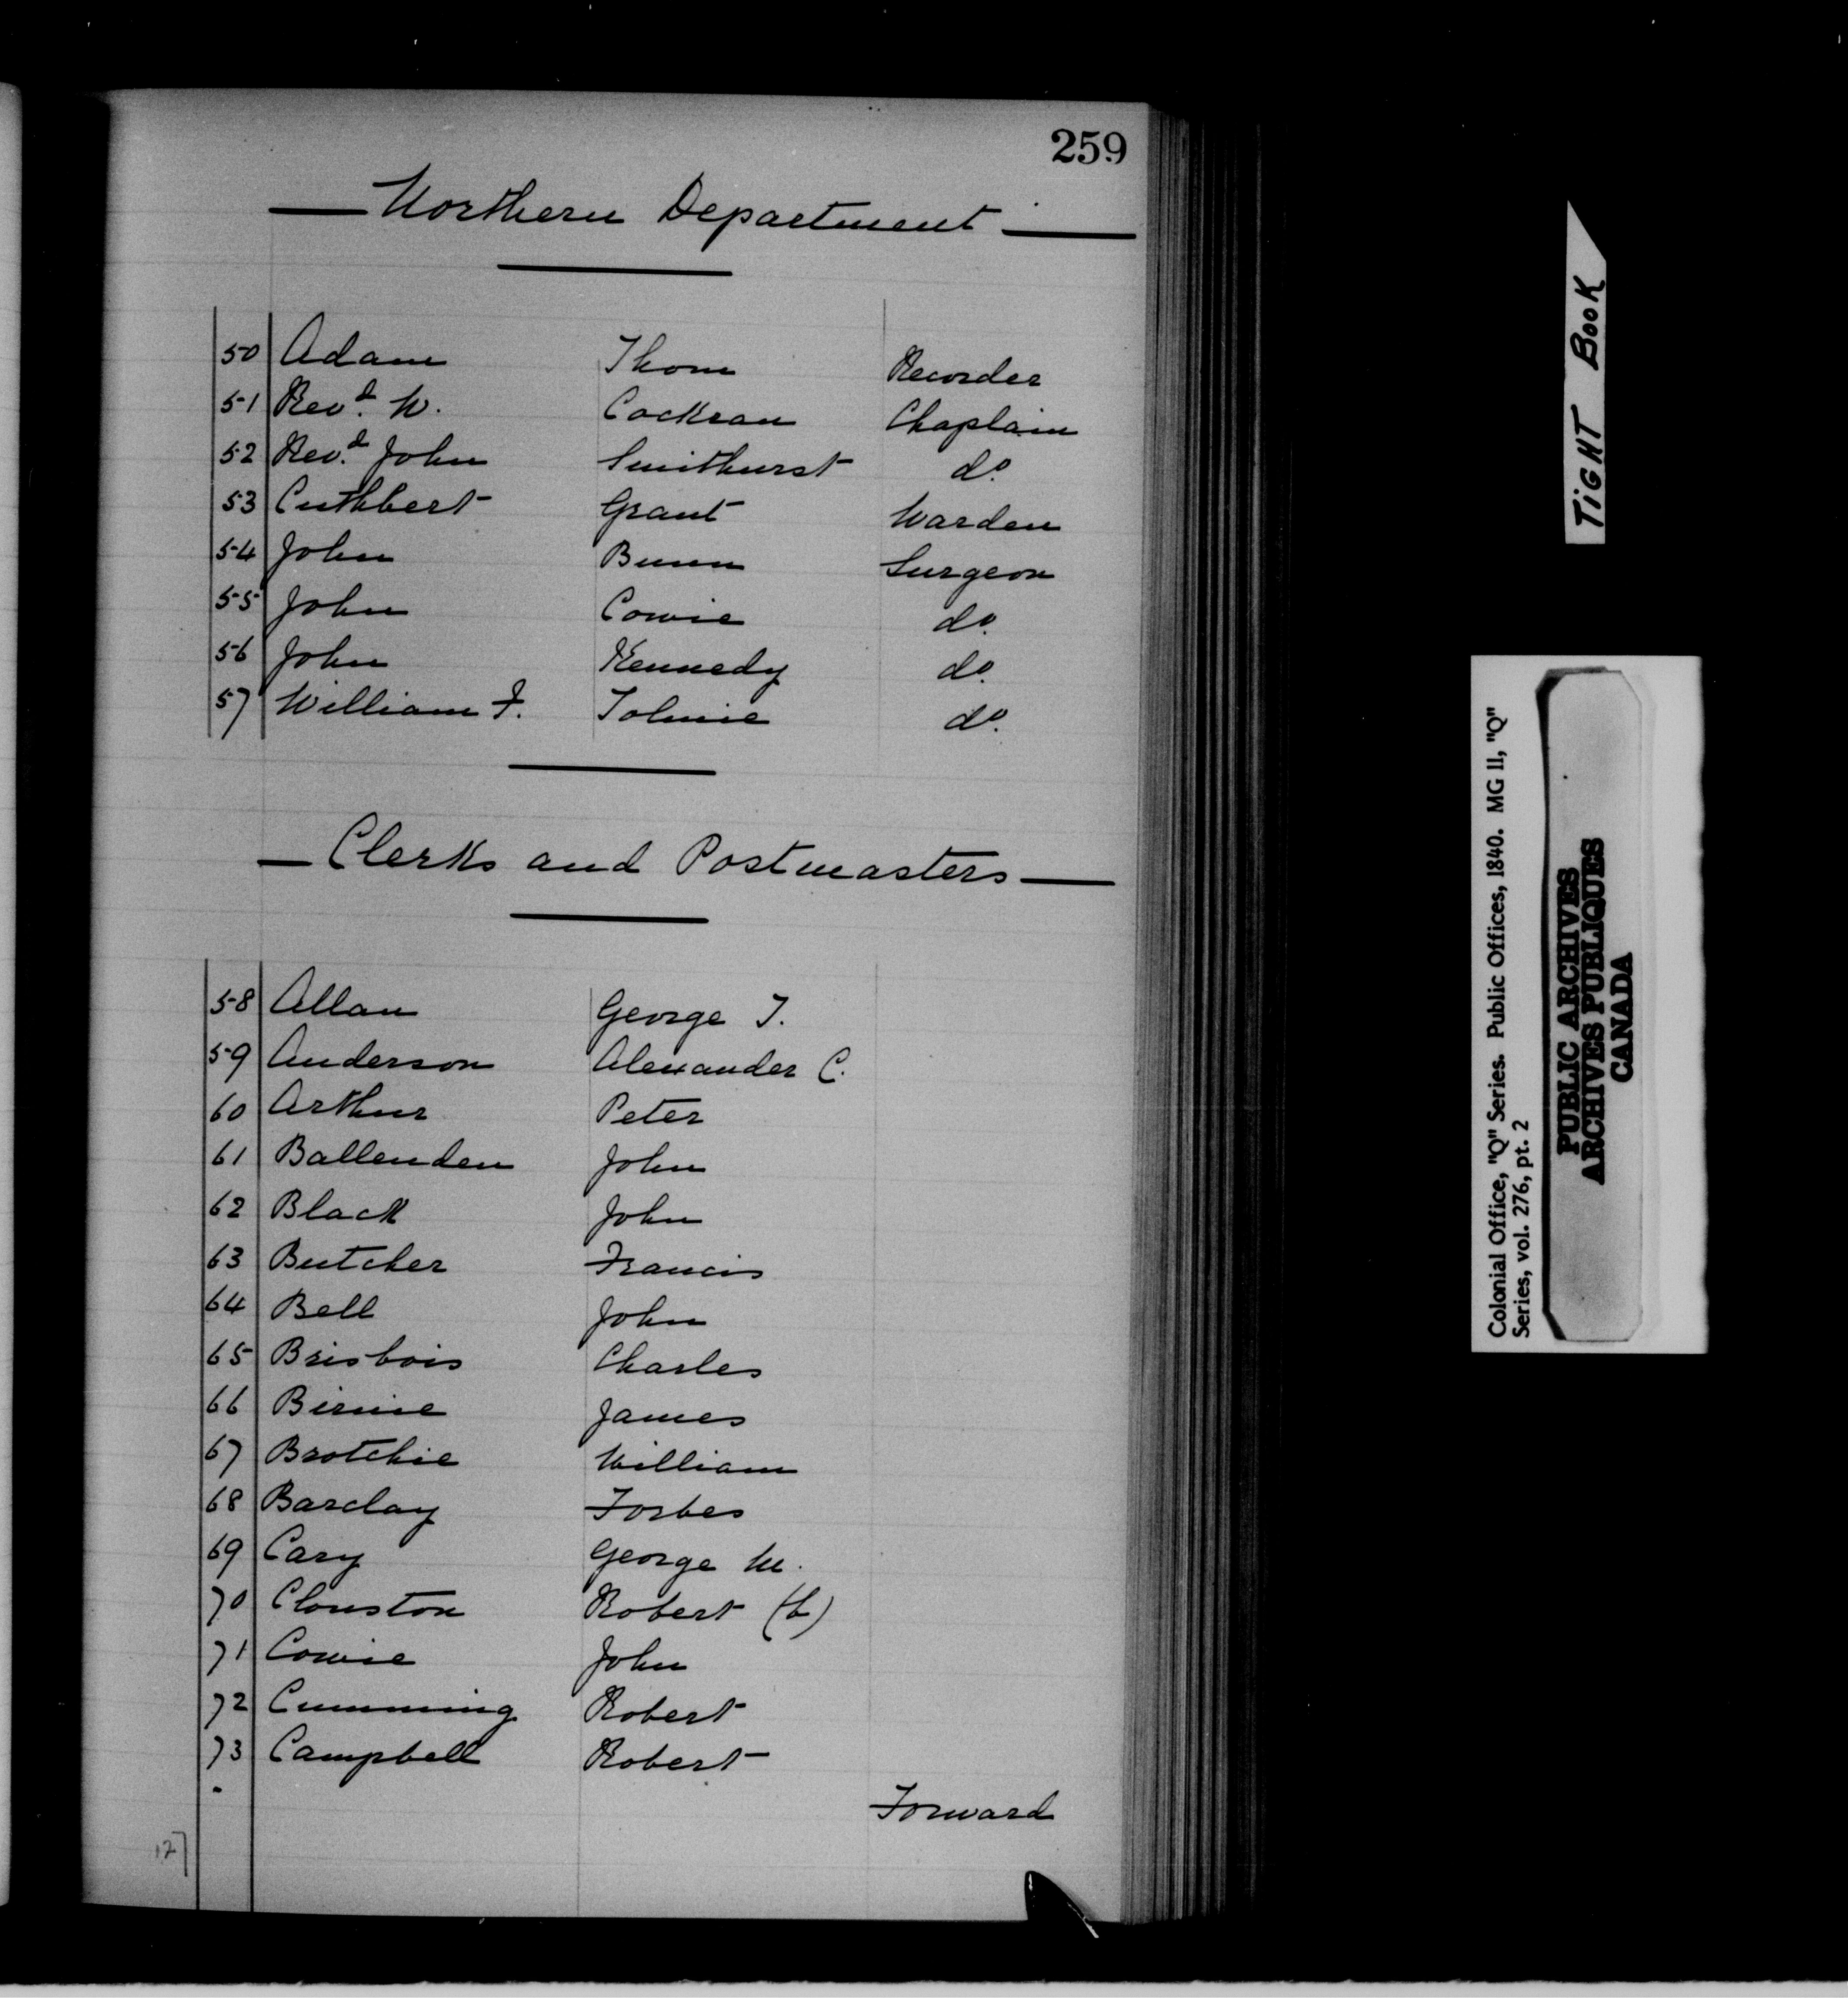 259
Northern Department
50 Adam Thom Recorder
51 Revd. W. Cockran Chaplain
52 Revd. John Smithurst do.
53 Cuthbert Grant Warden
54 John Bunn Surgeon
55 John Cowie do.
56 John Kennedy do.
57 William F. Tolmie do.
Clerks and Postmasters
58 Allan George T.
59 Anderson Alexander C.
60 Arthur Peter
61 Ballenden John
62 Black John
63 Butcher Francis
64 Bell John
65 Brisbois Charles
66 Birnie James
67 Brotchie William
68 Barclay Forbes
69 Cary George M.
70 Clouston Robert (b)
71 Cowie John
72 Cumming Robert
73 Campbell Robert
Forward
127
TIGHT BOOK
Colonial Office, "Q" Series. Public Offices, 1840. MG 11, "Q"
Series, vol. 276, pt. 2
PUBLIC ARCHIVES
ARCHIVES PUBLIQUES
CANADA